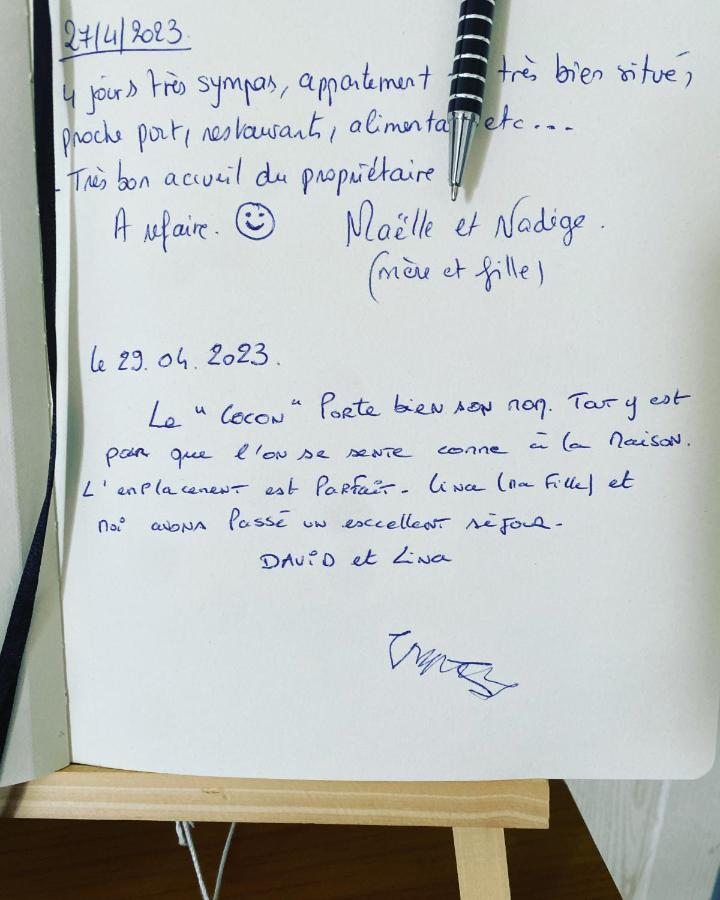 27/4/2023.
4 jours très sympas, appartement très bien situé,
proche port, restaurants, alimenta etc...
Très bon accueil du propriétaire
A refaire. ☺ Maëlle et Nadège.
(mère et fille)
le 29.04.2023.
Le "COCON" Porte bien son nom. Tout y est
pour que l'on se sente comme à la maison.
L'emplacement est Parfait. Lina (ma fille) et
moi avons Passé un excellent séjour.
DAViD et Lina